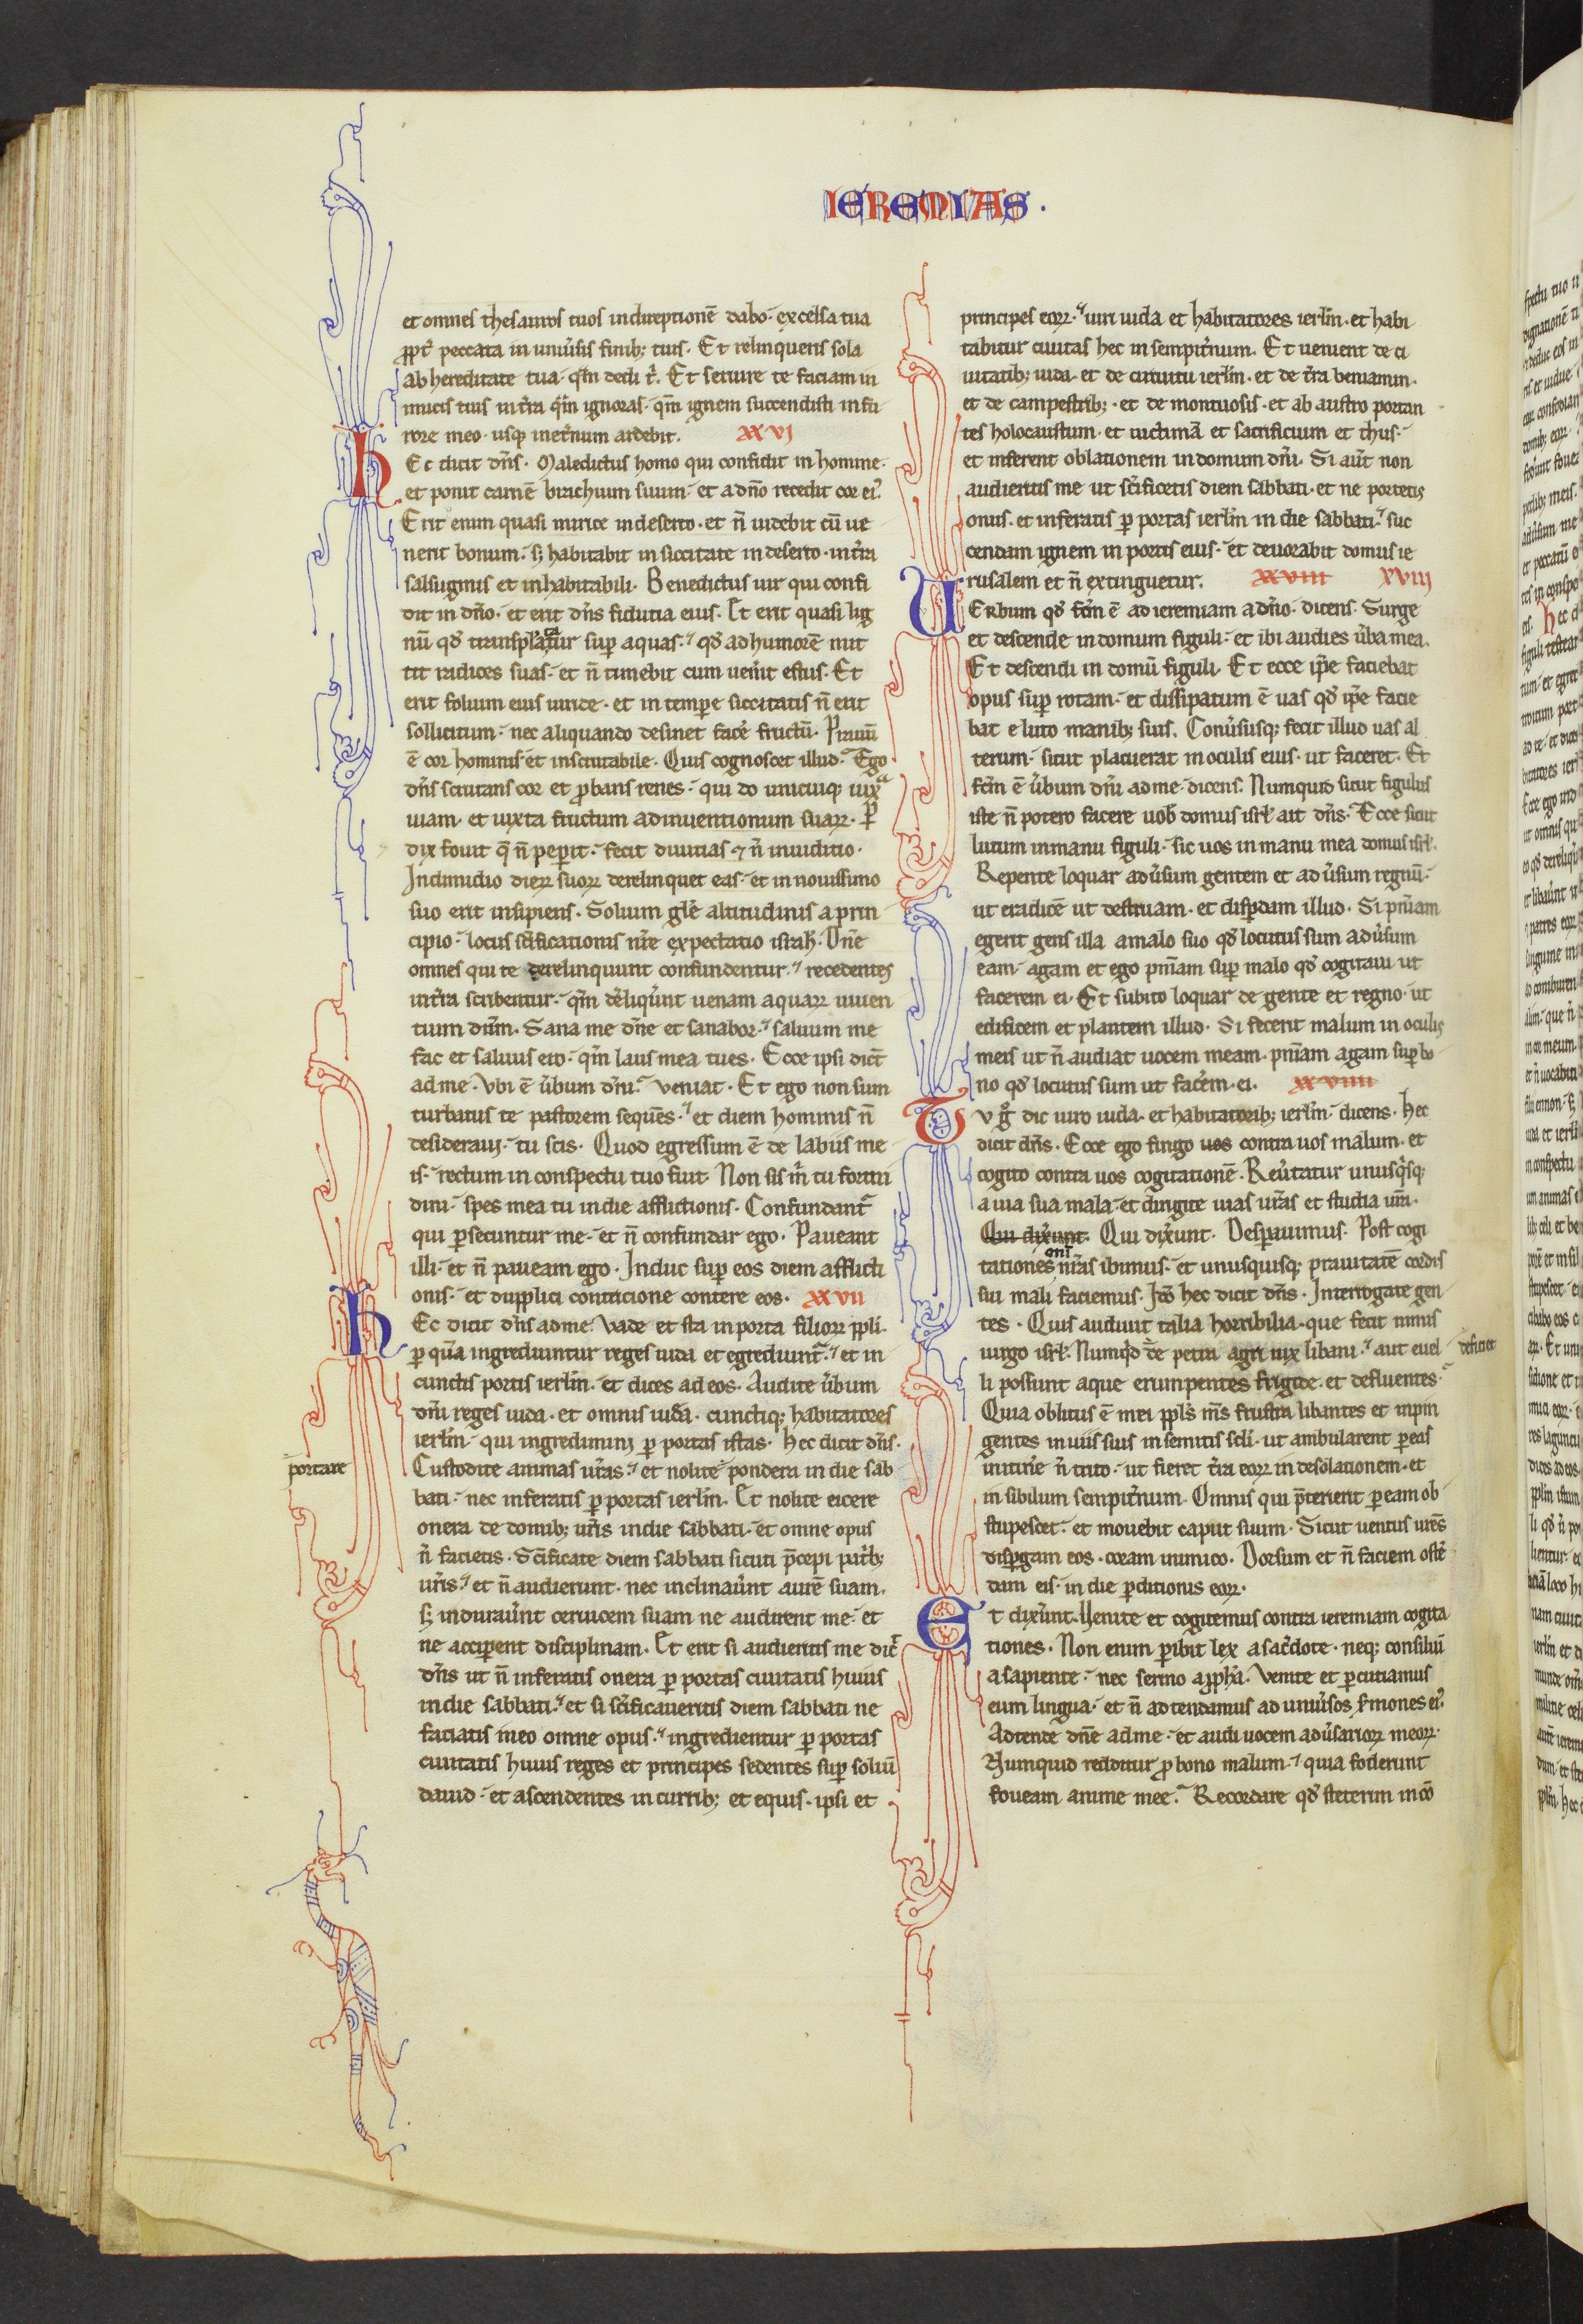 IEREMIAS.
et omnes thesauros tuos in direptionē dabo· excelsa tua
ꝓpt̉ peccata in uniu̾sis finib; tuis· Et relinqueris sola
ab hereditate tua· qm̄ dedi t̉· Et seruire te faciam in
imicis tuis in t̉ra qm̄ ignoras· qm̄ ignem succendisti in fu
rore meo· usq; inet̉num ardebit. XXVI
HEc dicit dn̄s· Maledictus homo qui confidit in homine·
et ponit carnē brachium suum· et a dn̄o recedit cor ei᷒·
Erit enim quasi mirice in deserto· et n̄ uidebit cū ue
nerit bonum· s; habitabit in siccitate in deserto· in t̉ra
salsuginis et inhabitabili· Benedictus uir qui confi
dit in dn̄o· et erit dn̄s fiducia eius· Et erit quasi lig
nū qd̉ transplantatur suꝑ aquas· qd̉ ad humorē mit
tit radices suas· et n̄ timebit cum uen̉it estus· Et
erit folium eius uiride· et in tempe siccitatis n̄ erit
sollicitum· nec aliquando desinet face̾ fructū· Prauū
ē cor hominis et inscrutabile· Quis cognoscet illud· Ego
dn̄s scrutans cor et ꝓbans renes· qui do unicuiq; iuxᵃ
uiam· et iuxta fructum adinuentionum suaꝝ· P̱
dix fouit q̄ n̄ peperit· fecit diuitias ⁊ n̄ in iuditio·
In dimidio dieꝝ suoꝝ derelinquet eas· et in nouissimo
suo erit insipiens· Solium glē altitudinis a prin
cipio· locus sc̄ificationis nr̄e expectatio israhl̄· Dn̄e
omnes qui te derelinquunt confundentur· recedentes
in t̉ra scribentur· qm̄ de̾liq̉unt uenam aquaꝝ uiuen
tium dn̄m· Sana me dn̄e et sanabor· saluum me
fac et saluus ero· qm̄ laus mea tu es· Ecce ipsi dict̄
ad me· Vbi ē u̾bum dn̄i· ueniat· Et ego non sum
turbatus te pastorem sequēs· et diem hominis n̄
desideraui· tu scis· Quod egressum ē de labiis me
is· rectum in conspectu tuo fuit· Non sis m̉ tu formi
dini· spes mea tu in die afflictionis· Confundant᷑
qui ꝑsecuntur me· et n̄ confundar ego· Paueant
illi· et n̄ paueam ego· Induc suꝑ eos diem afflicti
onis· et dupplici contricione contere eos· XXVII
HEc dicit dn̄s ad me· Vade et sta in porta filioꝝ ppl̄i·
ꝑ quā ingrediuntur reges iuda et egrediunt᷑· et in
cunctis portis ierlm̄· et dices ad eos· Audite u̾bum
dn̄i reges iuda· et omnis iuda· cunctiq; habitatores
ierlm̄· qui ingredimini ꝑ portas istas· Hec dicit dn̄s·
portare
Custodite animas ur̄as· et nolite pondera in die sab
bati· nec inferatis ꝑ portas ierlm̄· Et nolite eicere
onera de domib; ur̄is in die sabbati· et omne opus
n̄ facietis· Sc̄ificate diem sabbati sicuti p̄cepi patrib;
ur̄is· et n̄ audierunt· nec inclinau̾unt aurē suam·
s; indurau̾unt ceruicem suam ne audirent me· et
ne acciperent disciplinam· Et erit si audieritis me dic̄
dn̄s ut n̄ inferatis onera ꝑ portas ciuitatis huius
in die sabbati· et si sc̄ificaueritis diem sabbati ne
faciatis in eo omne opus· ingredientur ꝑ portas
ciuitatis huius reges et principes sedentes suꝑ soliū
dauid· et ascendentes in currib; et equis· ipsi et
principes eoꝝ· uiri iuda et habitatores ierlm̄· et habi
tabitur ciuitas hec in sempit̉num· Et uenient de ci
uitatib; iuda· et de circuitu ierlm̄· et de t̉ra beniamin·
et de campestrib;· et de montuosis· et ab austro portan
tes holocaustum· et uictimā et sacrificium et thus·
et inferent oblationem in domum dn̄i· Si aūt non
audieritis me ut sc̄ificetis diem sabbati· et ne portetis
onus· et inferatis ꝑ portas ierlm̄ in die sabbati· suc
cendam ignem in portis eius· et deuorabit domus ie
rusalem et n̄ extinguetur· XXVIII XVIII
UErbum qd̉ fc̄m ē ad ieremiam a dn̄o· dicens· Surge
et descende in domum figuli· et ibi audies u̾ba mea·
Et descendi in domū figuli· Et ecce ip̄e faciebat
opus suꝑ rotam· et dissipatum ē uas qd̉ ip̄e facie
bat e luto manib; suis· Conu̾susq; fecit illud uas al
terum· sicut placuerat in oculis eius· ut faceret· Et
fc̄m ē u̾bum dn̄i ad me· dicens· Numquid sicut figulus
iste n̄ potero facere uob̄ domus isrl̄ ait dn̄s· Ecce sicut
lutum in manu figuli· sic uos in manu mea domus isrl̄·
Repente loquar adu̾sum gentem et adu̾sum regnū·
ut eradicē ut destruam· et disꝑdam illud· Si pn̄iam
egerit gens illa a malo suo qd̉ locutus sum adu̾sum
eam· agam et ego pn̄iam suꝑ malo qd̉ cogitaui ut
facerem ei· Et subito loquar de gente et regno· ut
edificem et plantem illud· Si fecerit malum in oculis
meis ut n̄ audiat uocem meam· pn̄iam agam suꝑ bo
no qd̉ locutus sum ut face̾m ei· XXVIIII
Tv g̊ dic uiro iuda· et habitatorib; ierlm̄· dicens· Hec
dicit dn̄s· Ecce ego fingo uos contra uos malum· et
cogito contra uos cogitationē· Reu̾tatur unusq̉sq;
a uia sua mala· et dirigite uias ur̄as et studia ur̄a·
Qui dix̉unt· Qui dix̉unt· Desperauimus· Post cogi
tationes nr̄as ibimus· et unusquisq; prauitatē cordis
sui mali faciemus· Ic̄o hec dicit dn̄s· Interrogate gen
tes· Quis audiuit talia horribilia· que fecit nimis
uirgo isrl̄· Numq̉d de petra agri nix libani· aut euel
deficiet
li possunt aque erumpentes frigide· et defluentes·
Quia oblitus ē mei ppl̄s m̄s frustra libantes et inpin
gentes in uiis suis in semitis sc̄li· ut ambularent ꝑ eas
in itin̉e n̄ trito· ut fieret t̉ra eoꝝ in desolationem· et
in sibilum sempit̉num· Omnis qui p̄terierit ꝑ eam ob
stupescet· et mouebit caput suum· Sicut uentus urēs
disꝑgam eos· coram inimico· Dorsum et n̄ faciem oste̾
dam eis· in die ꝑditionis eoꝝ·
Et dix̉unt· Venite et cogitemus contra ieremiam cogita
tiones· Non enim ꝑibit lex a sac̉dote· neq; consiliū
a sapiente· nec sermo a ꝓph̉a· Venite et ꝑcutiamus
eum lingua· et n̄ adtendamus ad uniu̾sos s̾mones ei᷒·
Adtende dn̄e ad me· et audi uocem adu̾sarioꝝ meoꝝ·
Numquid redditur ꝓ bono malum· quia foderunt
foueam anime mee· Recordare qd̉ steterim in cō